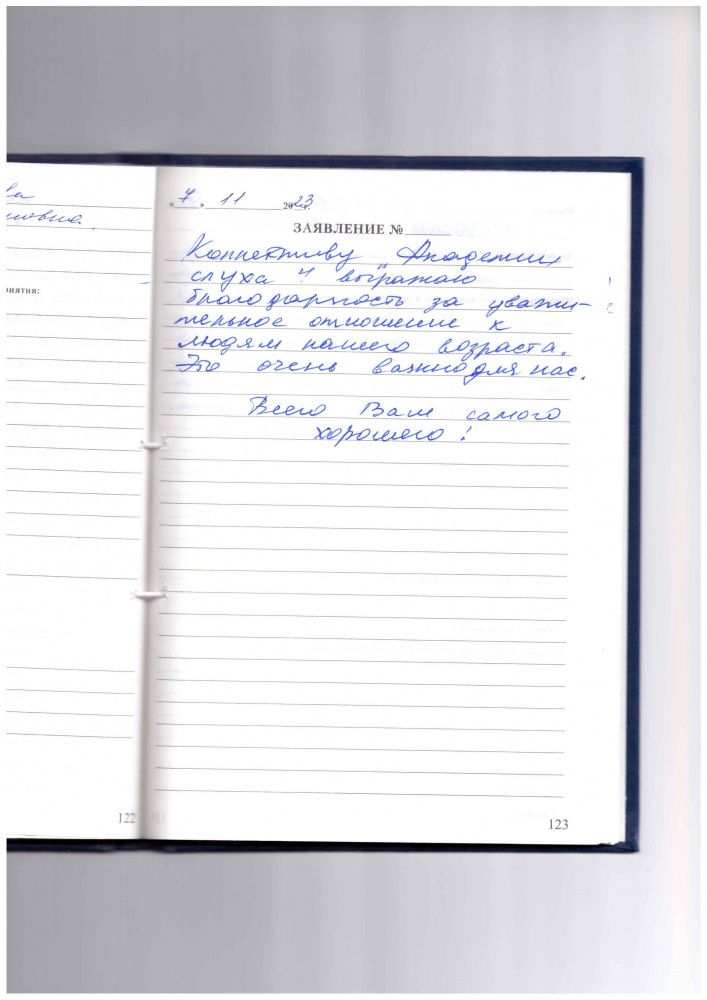 «7» 11 2023г.
ЗАЯВЛЕНИЕ №
Коллективу „Академии
слуха“ выражаю
благодарность за уважи-
тельное отношение к
людям нашего возраста.
Это очень важно для нас.
Всего Вам самого
хорошего!
риятия:
122
123